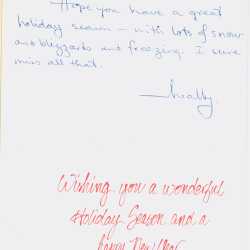 Hope you have a great
holiday season – with lots of snow
and blizzards and freezing. I sure
miss all that.
Wishing you a wonderful
Holiday Season and a
Happy New Year